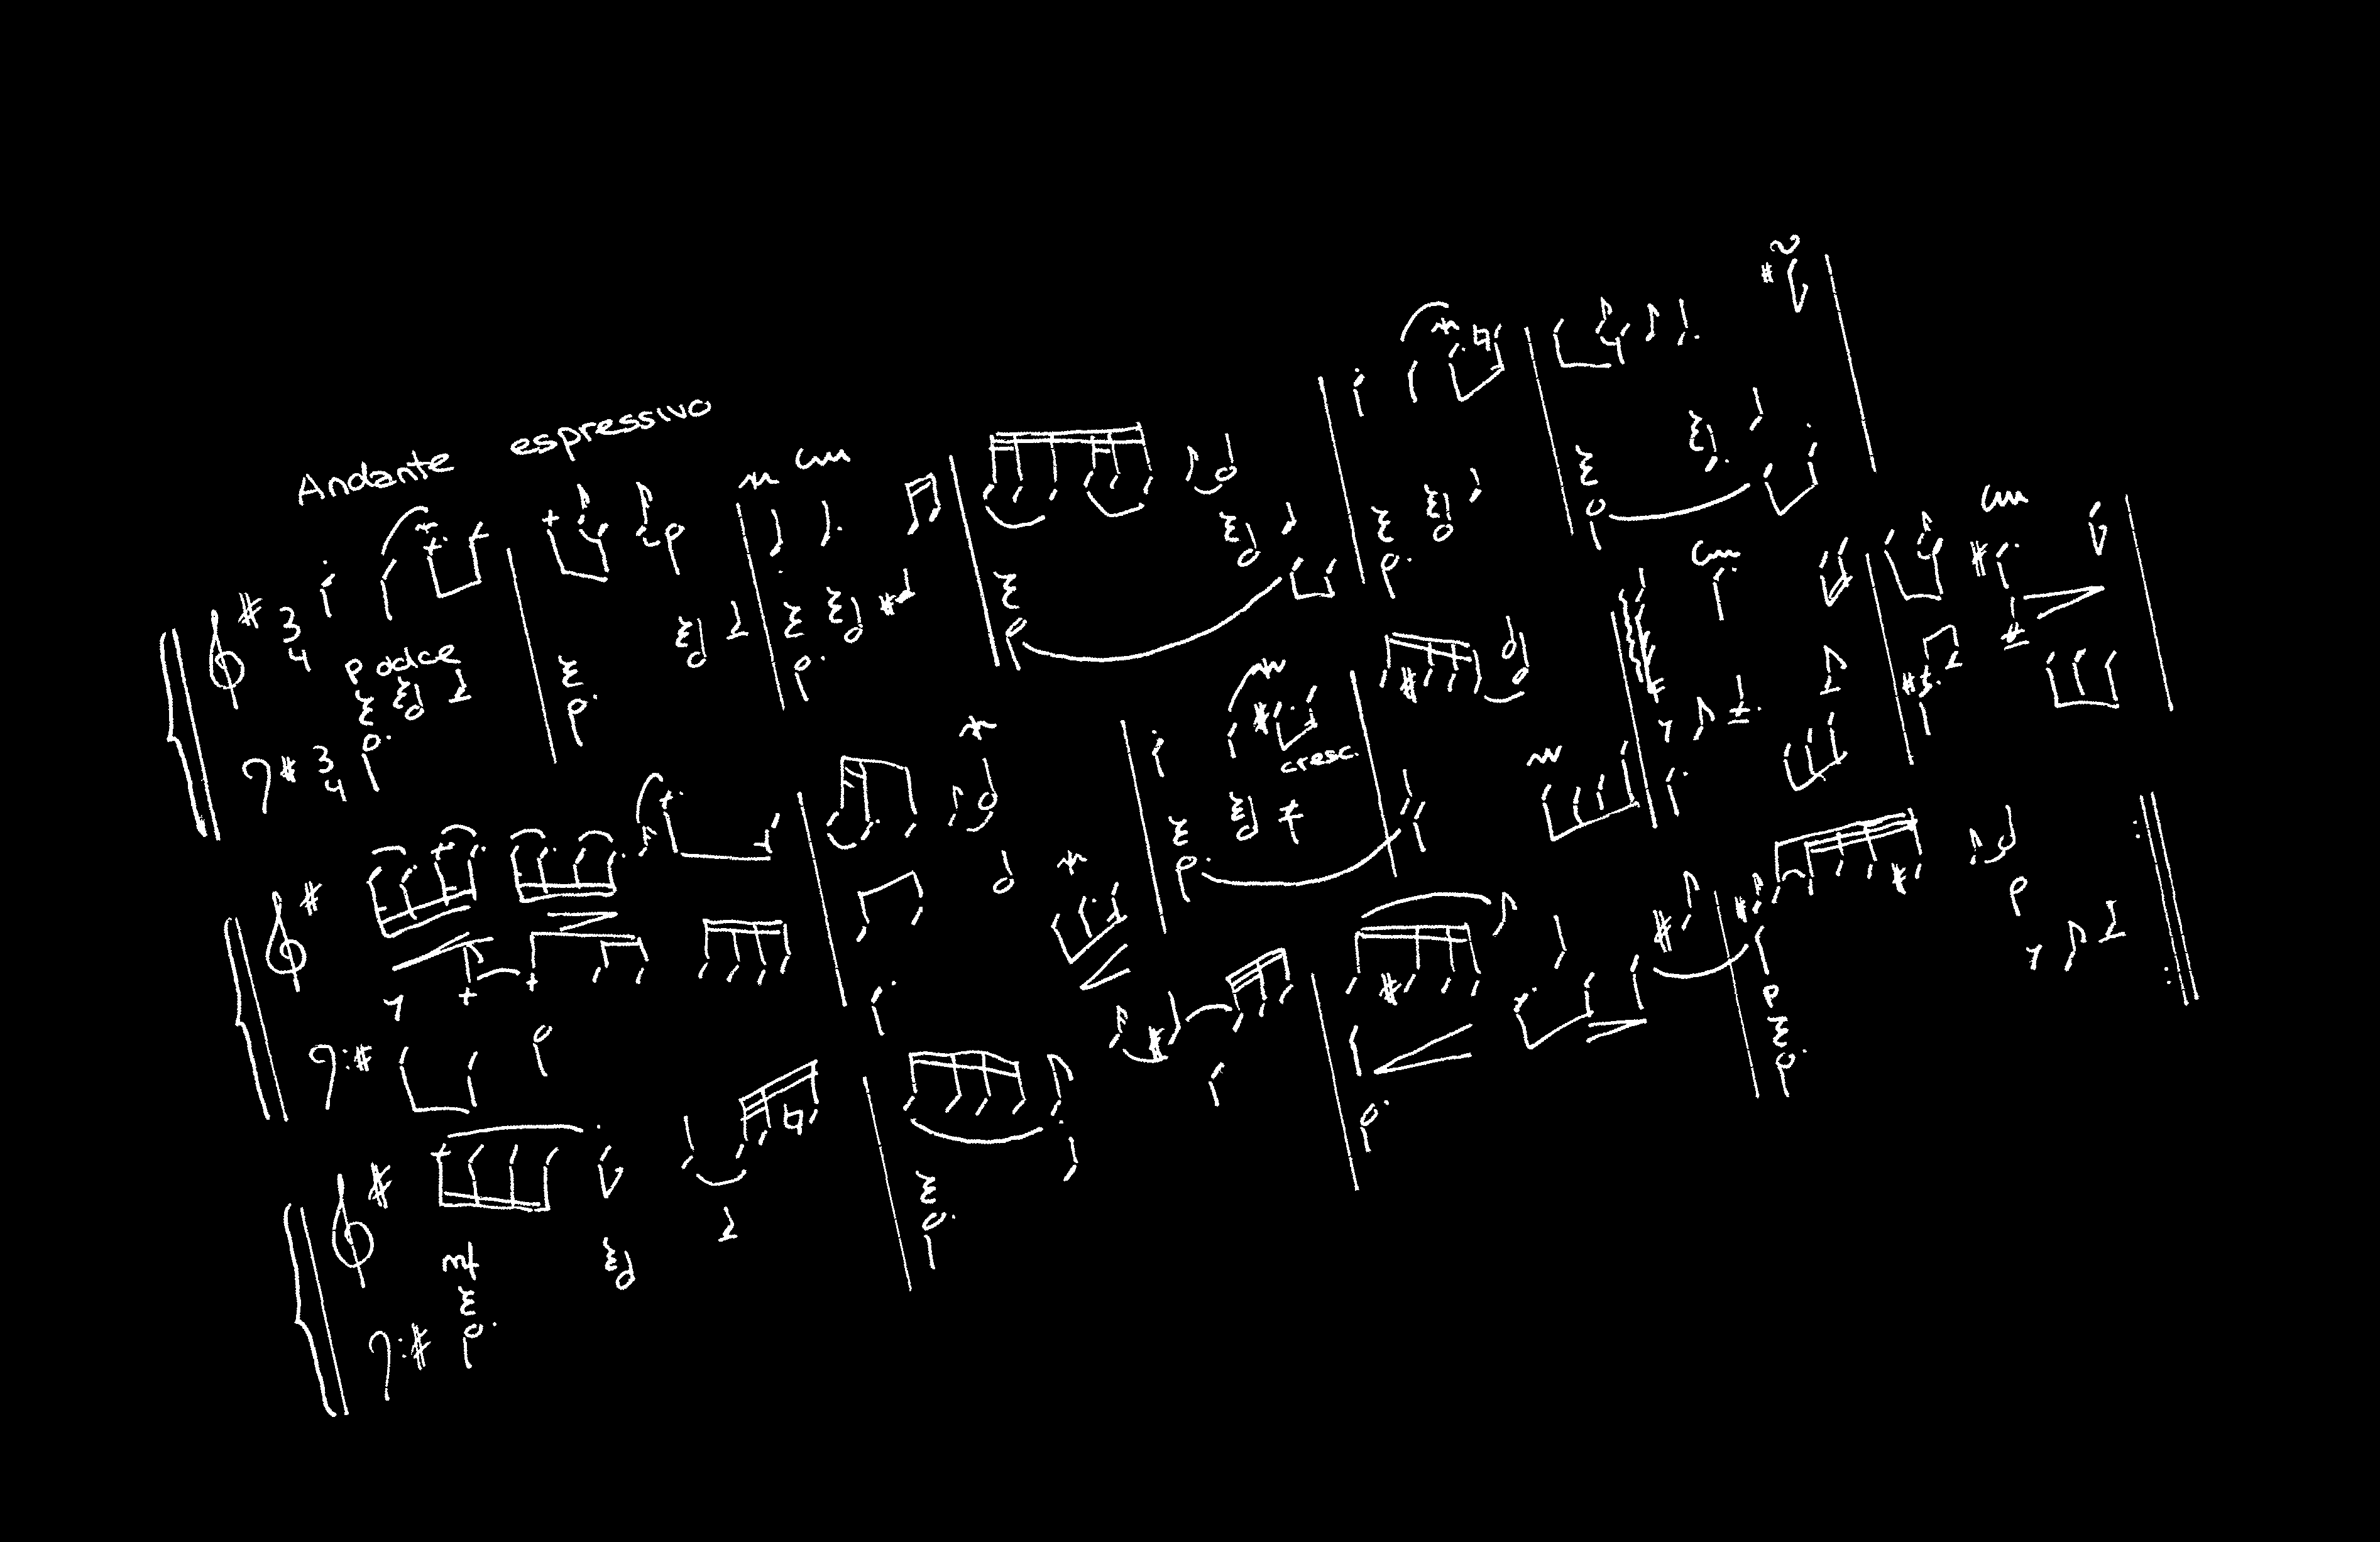 Andante espressivo
3
4
p dolce
3
4
cresc.
p
mf